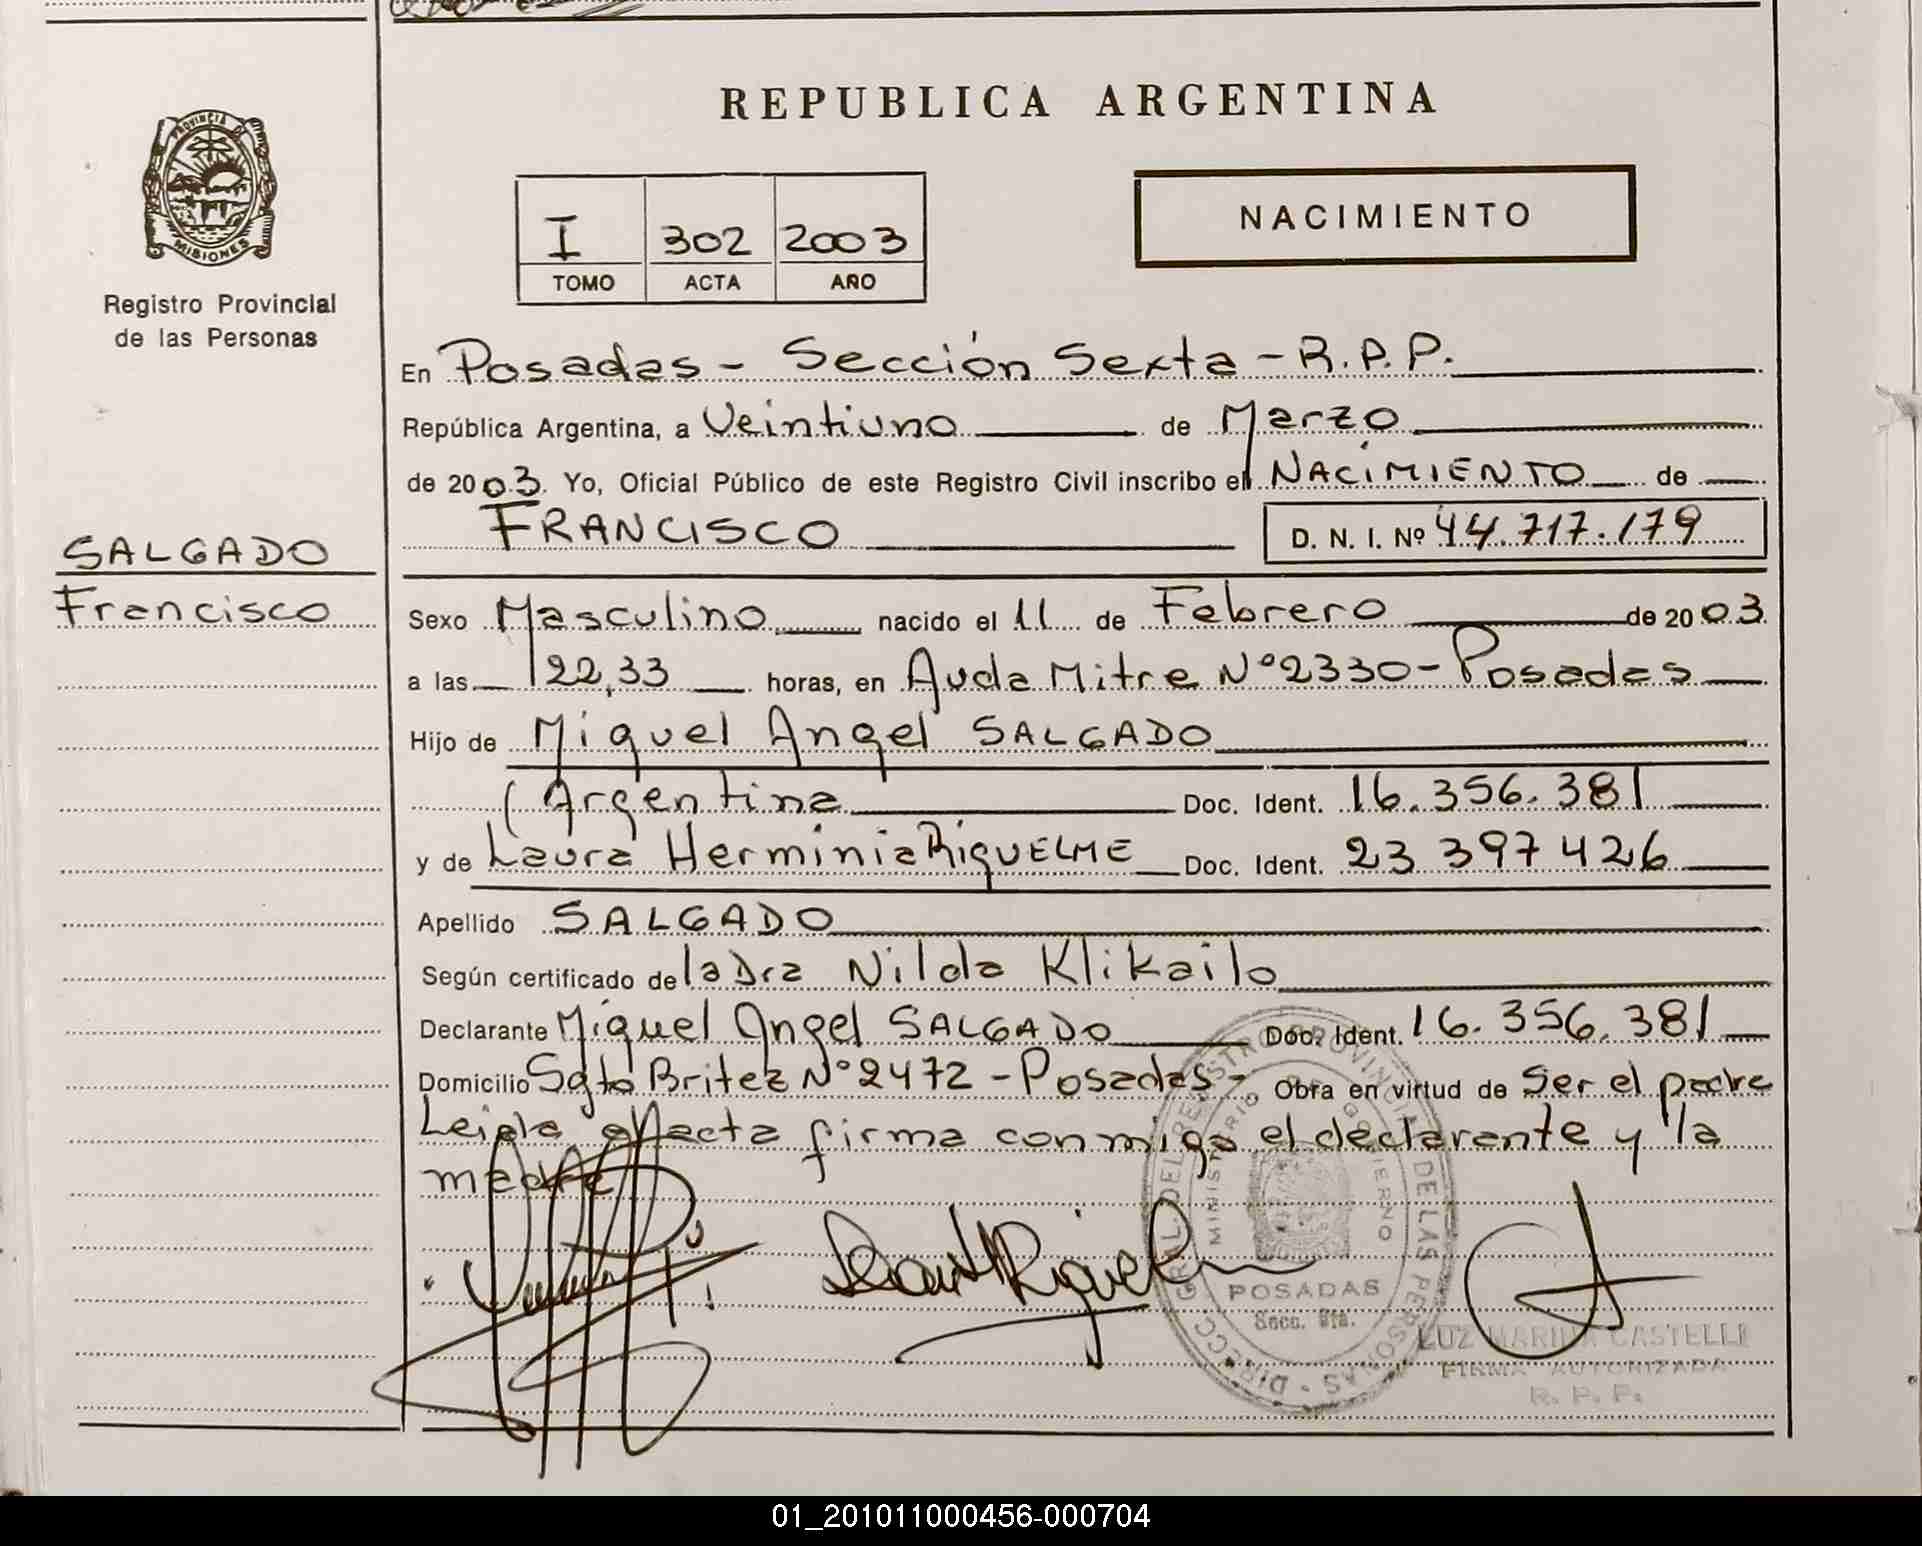 PROVINCIA DE
MISIONES
Registro Provincial
de las Personas
SALGADO
Francisco
REPUBLICA ARGENTINA
I 302 2003
TOMO ACTA AÑO
NACIMIENTO
En Posadas - Sección Sexta - R.P.P.
República Argentina, a Veintiuno de Marzo
de 2003. Yo, Oficial Público de este Registro Civil inscribo el NACIMIENTO de
FRANCISCO D. N. I. Nº 44.717.179
Sexo Masculino nacido el 11 de Febrero de 2003
a las 22,33 horas, en Avda Mitre Nº 2330 - Posadas
Hijo de Miguel Angel SALGADO
(Argentina Doc. Ident. 16.356.381
y de Laura Herminia RIQUELME Doc. Ident. 23 397 426
Apellido SALGADO
Según certificado de la Dra Nilda Klikailo
Declarante Miguel Angel SALGADO Doc. Ident. 16.356.381
Domicilio Sgto Britez Nº 2472 - Posadas - Obra en virtud de Ser el padre
Leida el Acta firma conmigo el declarante y la
madre
DIRECC. GRAL. DEL REGISTRO PROVINCIAL DE LAS PERSONAS
MINISTERIO DE GOBIERNO
POSADAS
Secc. 6ta.
LUZ MARINA CASTELLI
FIRMA AUTORIZADA
R. P. P.
01_201011000456-000704